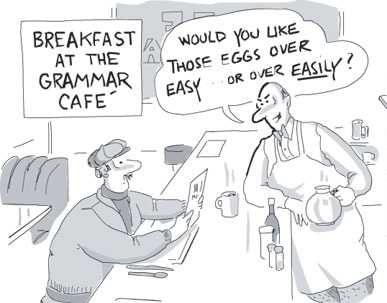 BREAKFAST
AT THE
GRAMMAR
CAFÉ
WOULD YOU LIKE
THOSE EGGS OVER
EASY...OR OVER EASILY?